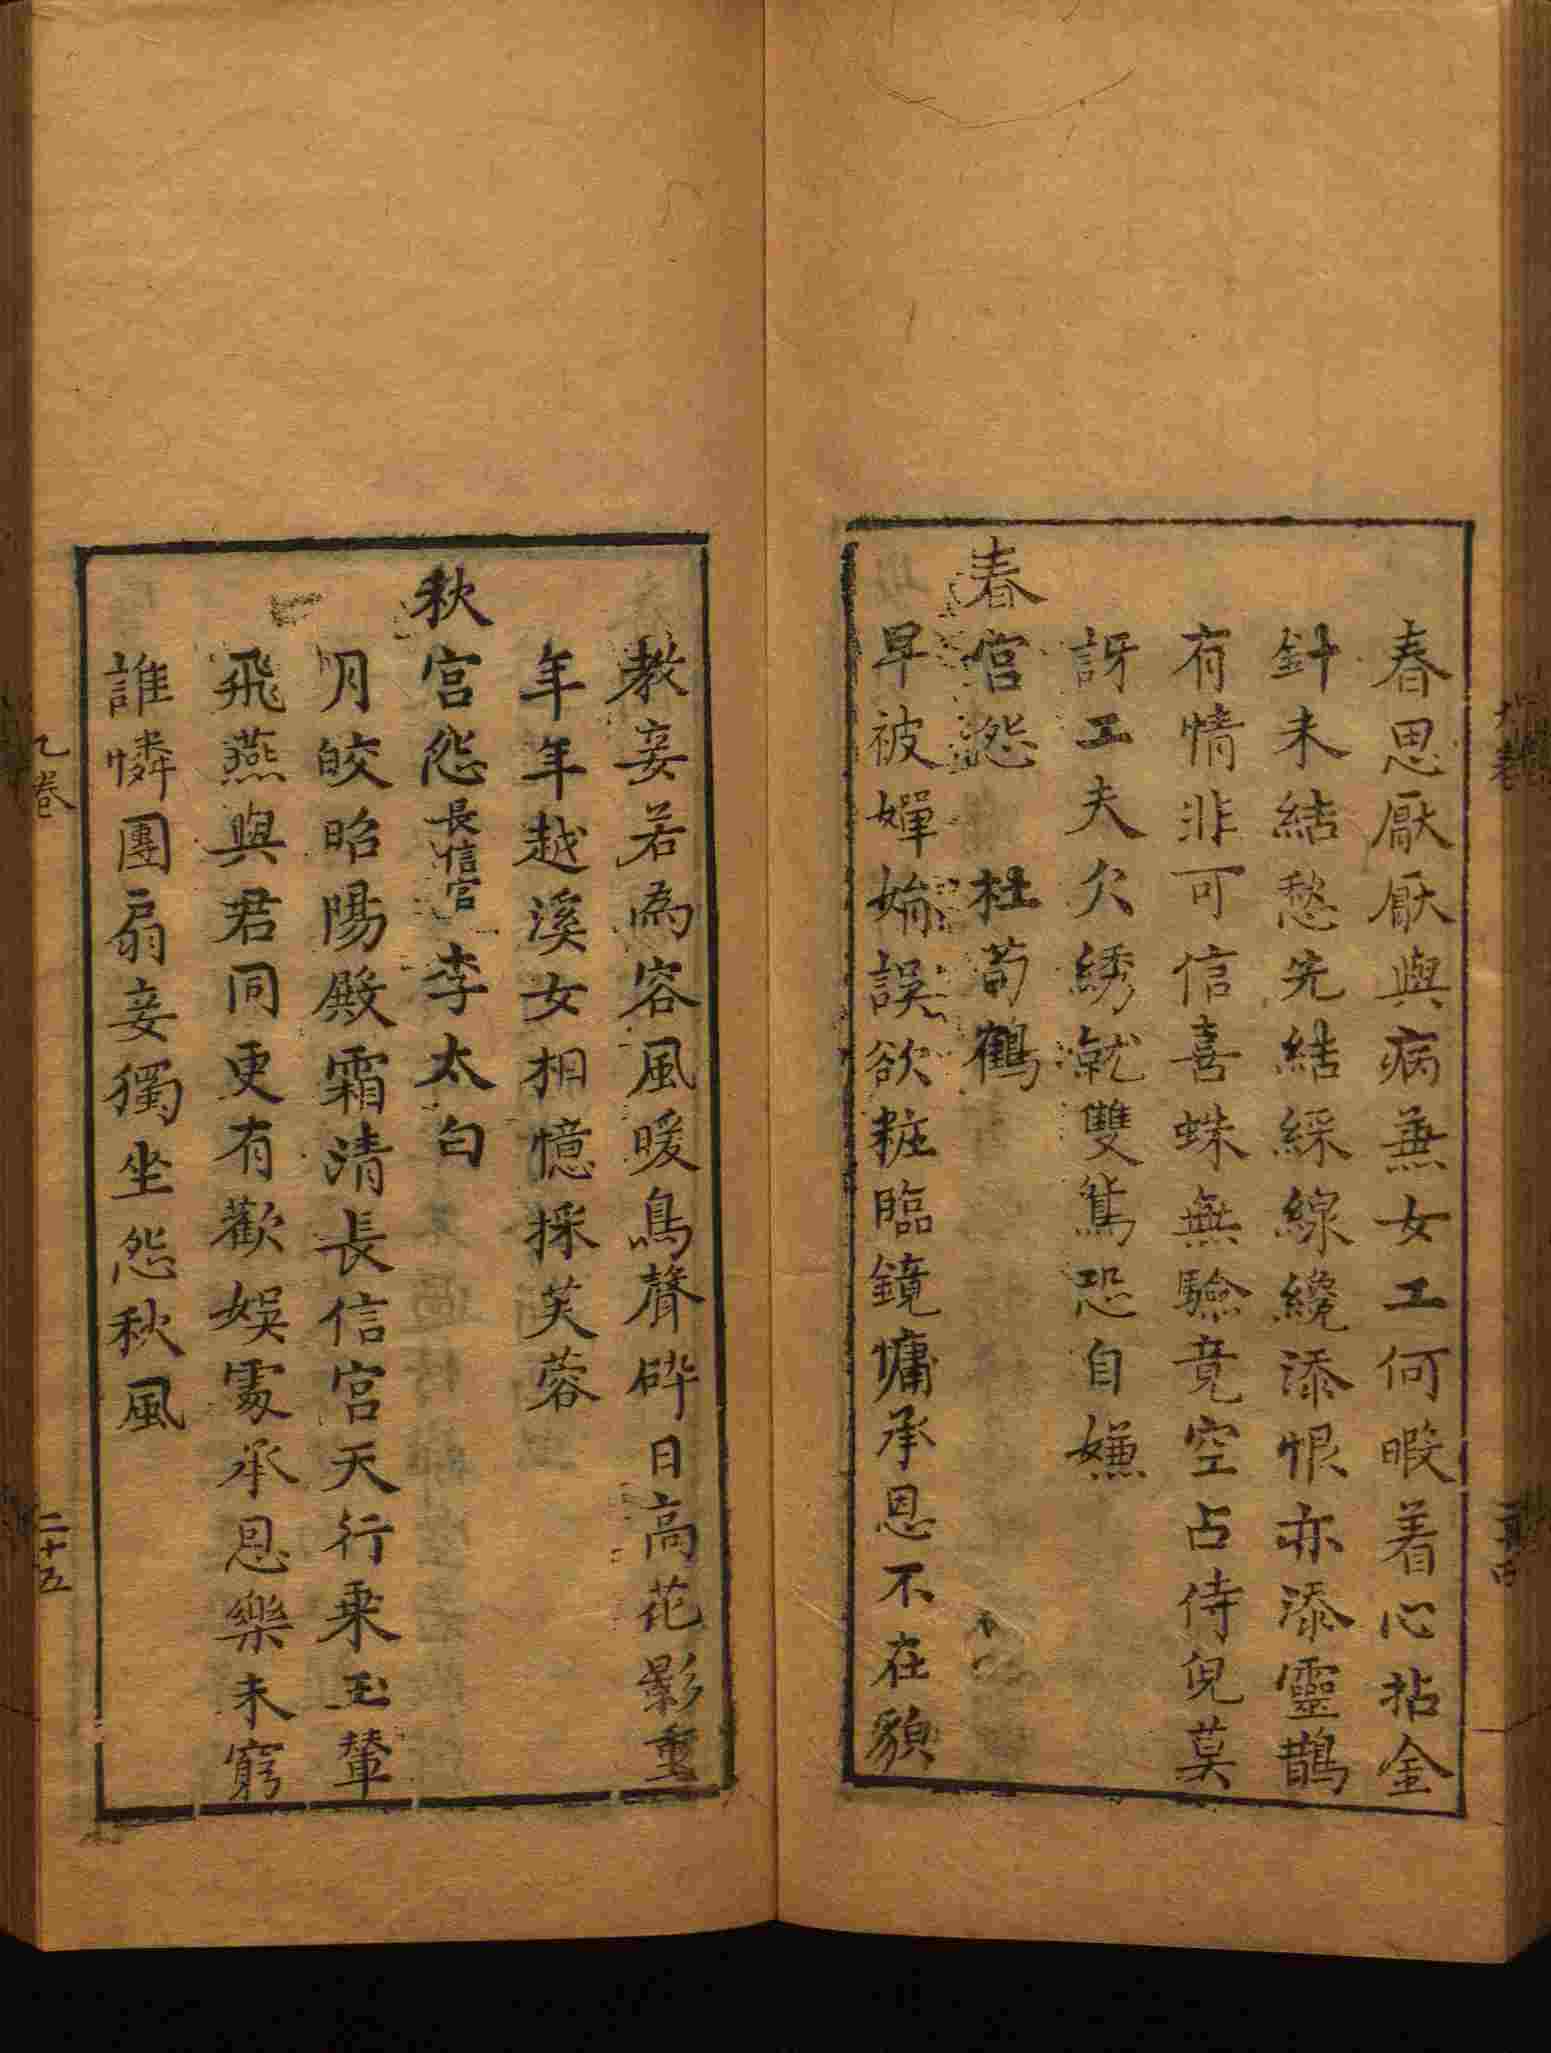 春思厭厭與病兼女工何暇着心拈金
針未結愁先結綵線纔添恨亦添靈鵲
有情非可信喜蛛無驗竟空占侍兒莫
訝工夫欠綉就雙鴛恐自嫌
春宫怨 杜荀鶴
早被嬋婾誤欲粧臨鏡慵承恩不在貌
教妾若為容風暖鳥聲碎日高花影重
年年越溪女相憶採芙蓉
秋宫怨 長信宫 李太白
月皎昭陽殿霜清長信宫天行乗玉輦
飛燕與君同更有歡娛處承恩樂未窮
誰憐團扇妾獨坐怨秋風
乙卷
二十五